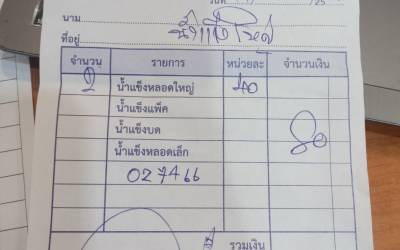 วันที่ /25
นาม น้ำแข็งโหล
ที่อยู่
จำนวน รายการ หน่วยละ จำนวนเงิน
2 น้ำแข็งหลอดใหญ่ 40
น้ำแข็งแพ็ค
น้ำแข็งบด 80
น้ำแข็งหลอดเล็ก
027466
รวมเงิน